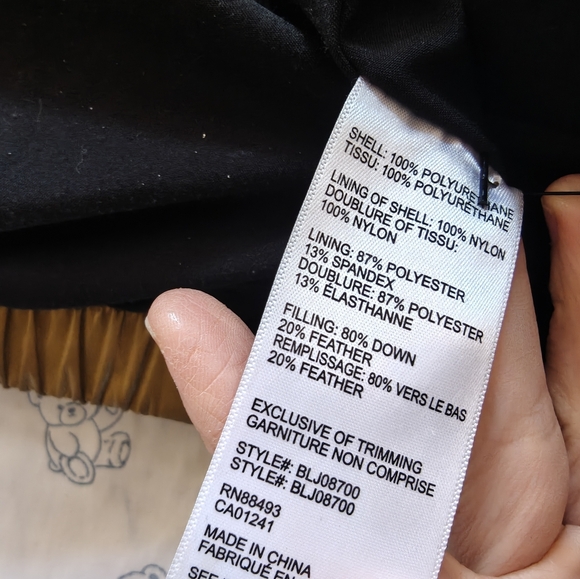 SHELL: 100% POLYURETHANE
TISSU: 100% POLYURETHANE
LINING OF SHELL: 100% NYLON
DOUBLURE OF TISSU:
100% NYLON
LINING: 87% POLYESTER
13% SPANDEX
DOUBLURE: 87% POLYESTER
13% ÉLASTHANNE
FILLING: 80% DOWN
20% FEATHER
REMPLISSAGE: 80% VERS LE BAS
20% FEATHER
EXCLUSIVE OF TRIMMING
GARNITURE NON COMPRISE
STYLE#: BLJ08700
STYLE#: BLJ08700
RN88493
CA01241
MADE IN CHINA
FABRIQUÉ EN
SEE